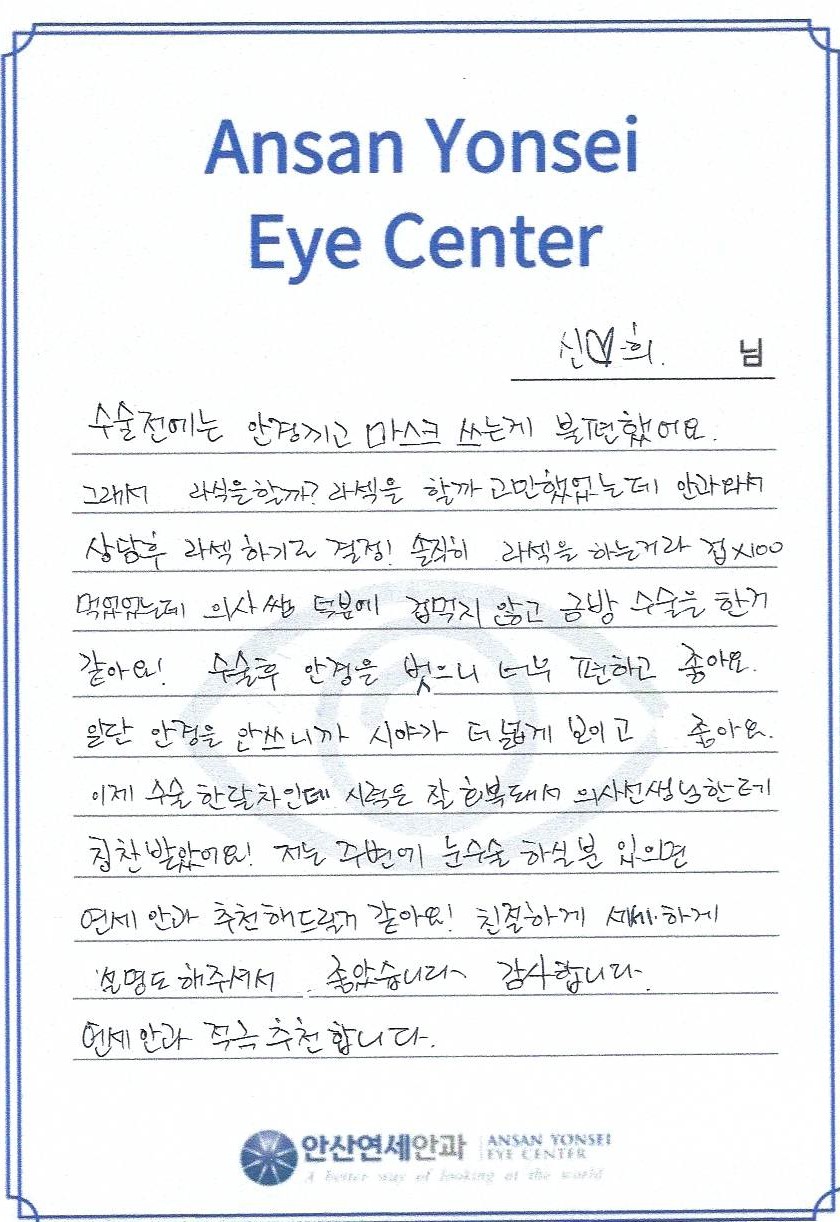 Ansan Yonsei
Eye Center
신♡희. 님
수술전에는 안경끼고 마스크 쓰는게 불편했어요.
그래서 라식을할까? 라섹을 할까 고민했었는데 안과와서
상담후 라섹 하기로 결정! 솔직히 라섹을 하는거라 겁x100
먹었었는데 의사쌤 덕분에 겁먹지 않고 금방 수술을 한거
같아요! 수술후 안경을 벗으니 너무 편하고 좋아요.
일단 안경을 안쓰니까 시야가 더 넓게 보이고 좋아요.
이제 수술 한달차인데 시력은 잘 회복돼서 의사선생님한테
칭찬받았어요! 저는 주변에 눈수술 하실분 있으면
연세 안과 추천해드릴거 같아요! 친절하게 세세하게
설명도 해주셔서 좋았습니다~ 감사합니다.
연세 안과 적극 추천합니다.
안산연세안과 ANSAN YONSEI
EYE CENTER
A better way of looking at the world